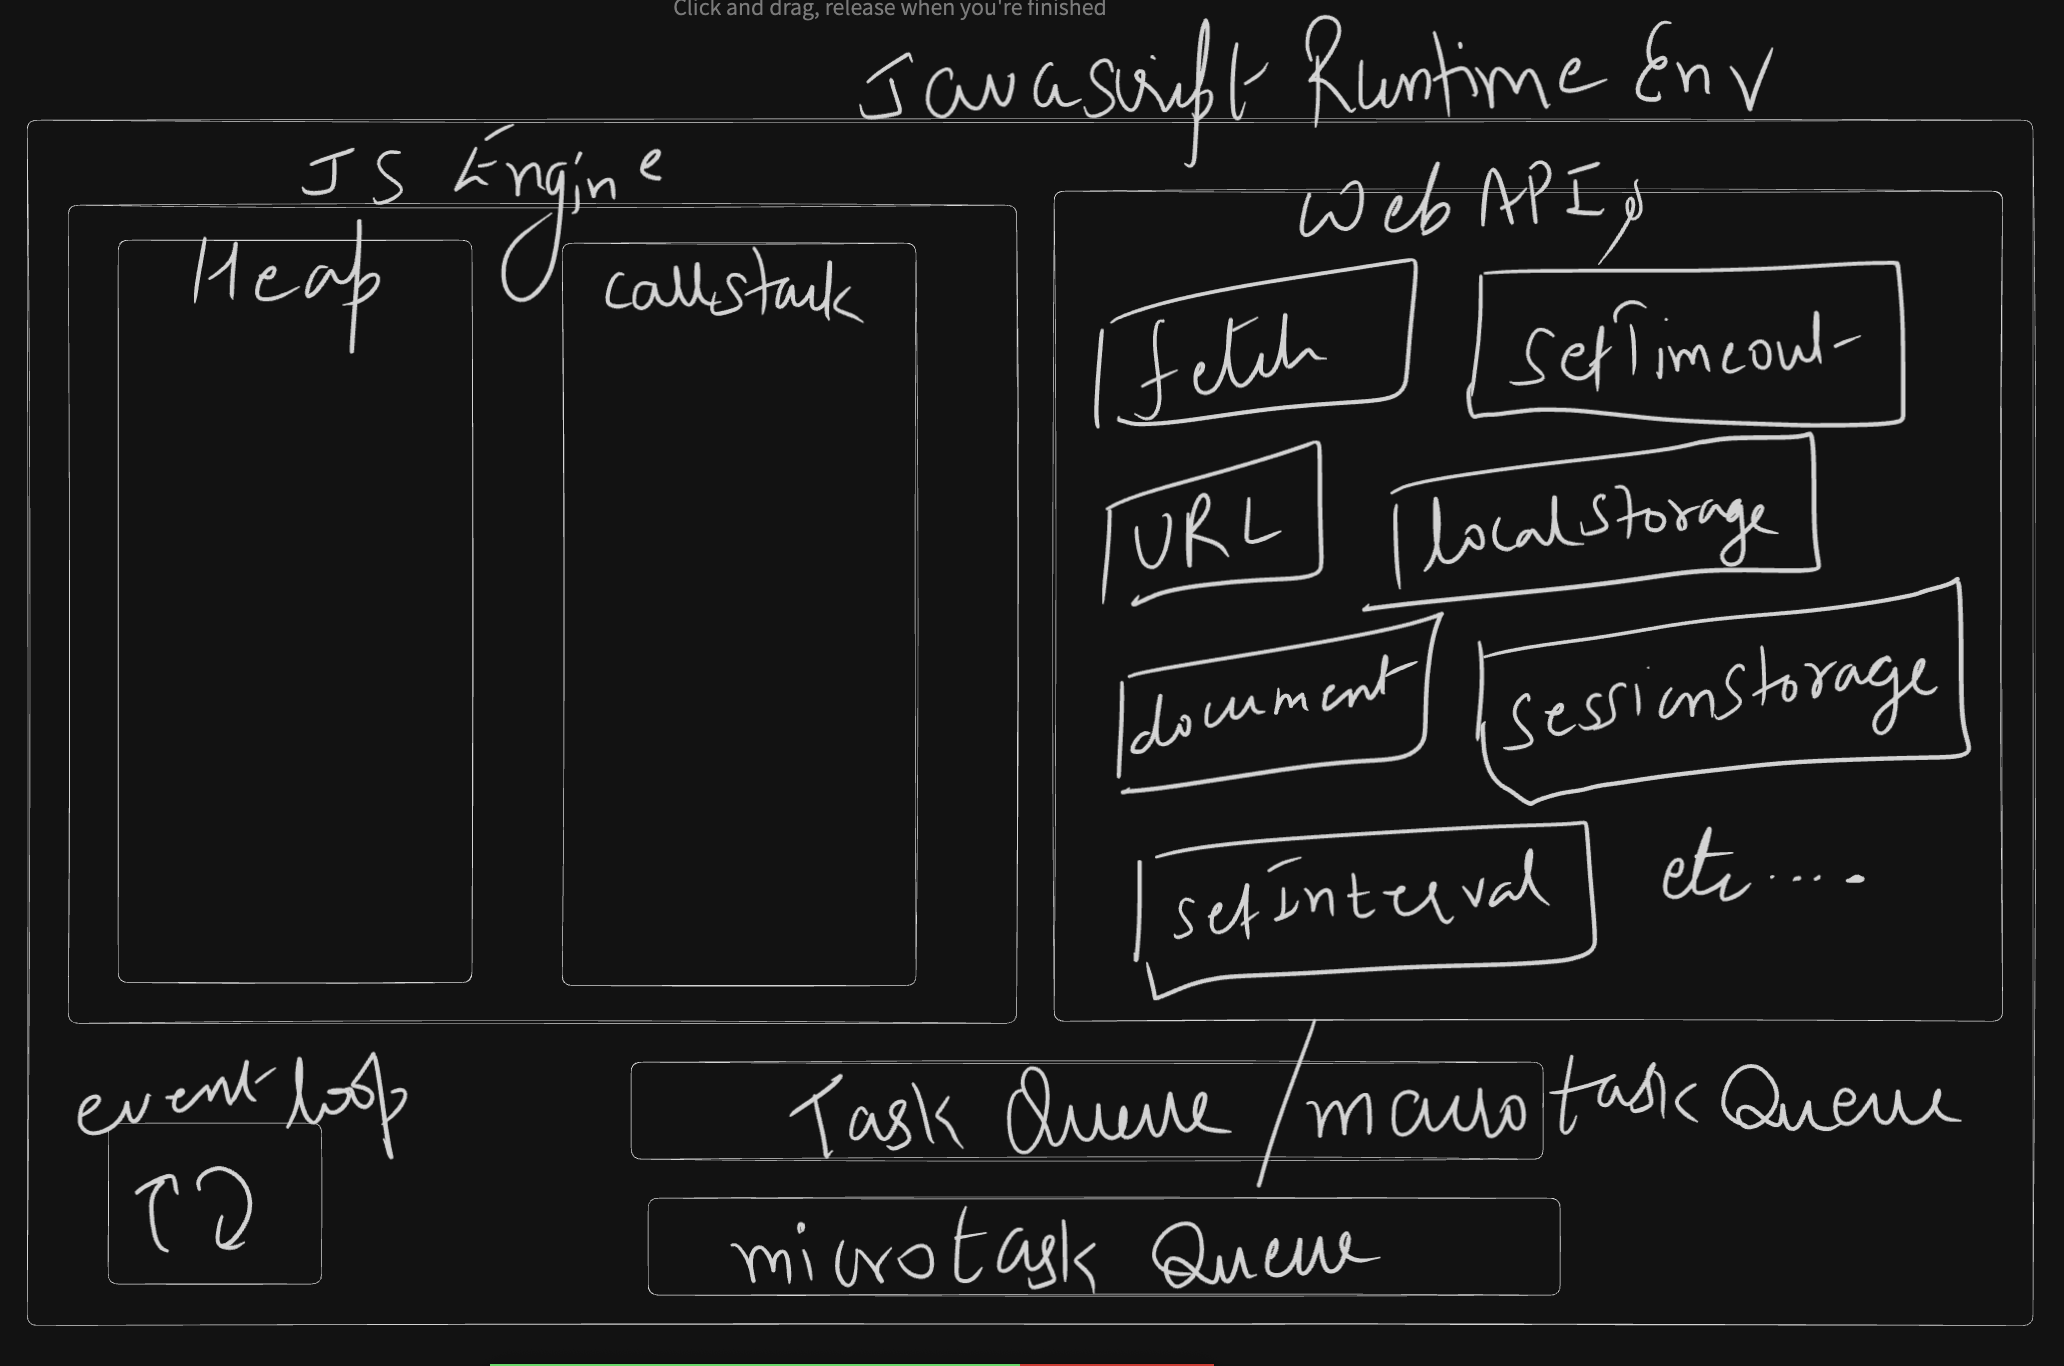 Click and drag, release when you're finished
Javascript Runtime Env
JS Engine
Heap
callstack
Web APIs
fetch
setTimeout
URL
localStorage
document
sessionStorage
setInterval
etc.....
event loop
Task Queue / macro task Queue
microtask Queue